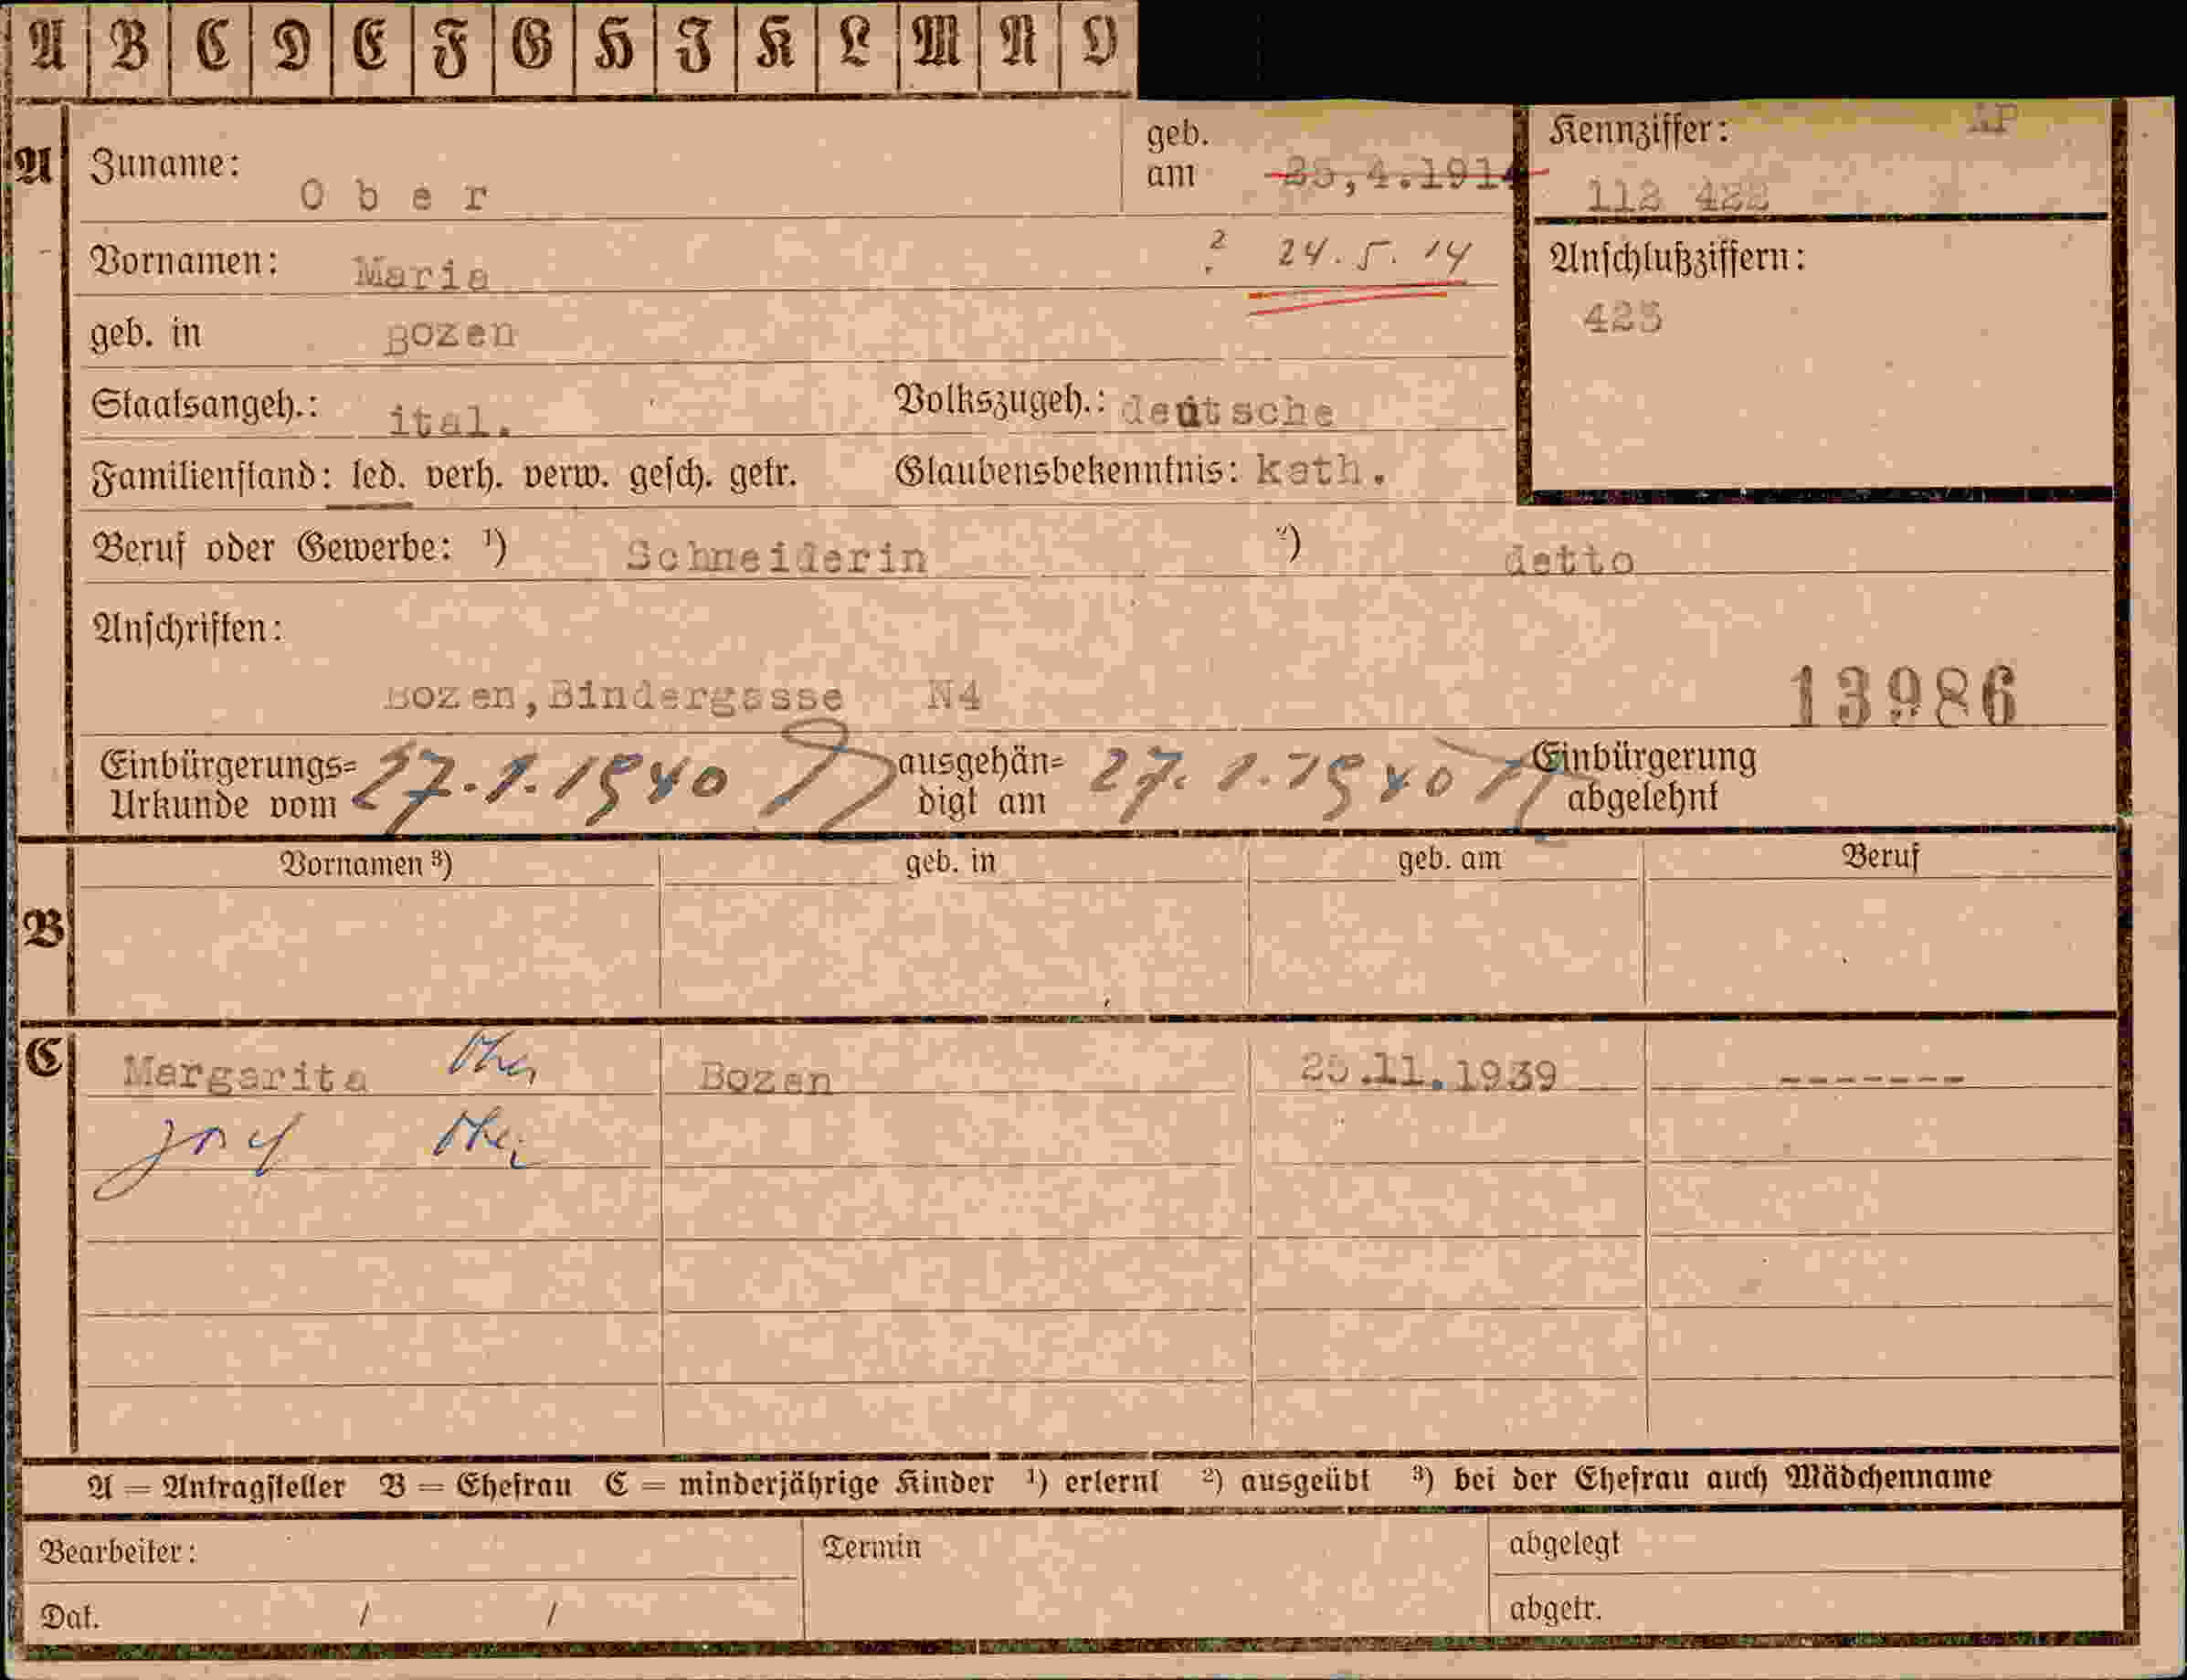 A B C D E F G H J K L M N O
A Zuname: Ober geb. am 25,4.1914 Kennziffer: AP
112 422
Vornamen: Maria ? 24.5.14 Anschlußziffern:
423
geb. in Bozen
Staatsangeh.: ital. Volkszugeh.: deutsche
Familienstand: led. verh. verw. gesch. getr. Glaubensbekenntnis: kath.
Beruf oder Gewerbe: ¹) Schneiderin ²) detto
Anschriften:
Bozen, Bindergasse N4 13986
Einbürgerungs=Urkunde vom 27.1.1940 ausgehän=digt am 27.1.1940 Einbürgerung abgelehnt
Vornamen ³) geb. in geb. am Beruf
B
C Margarita Ober Bozen 25.11.1939 -------
Josef Ober
A = Antragsteller B = Ehefrau C = minderjährige Kinder ¹) erlernt ²) ausgeübt ³) bei der Ehefrau auch Mädchenname
Bearbeiter: Termin abgelegt
Dat. / / abgetr.